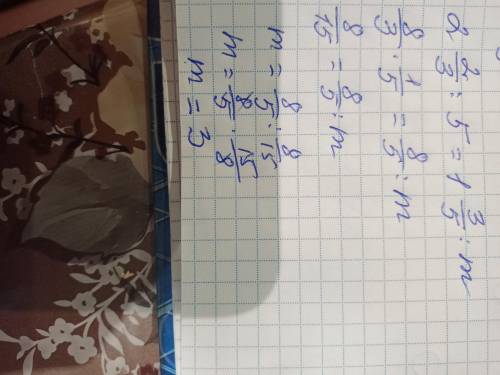 2 2/3 : 5 = 1 3/5 : m
8/3 · 1/5 = 8/5 : m
8/15 = 8/5 : m
m = 8/5 : 8/15
m = 8/5 · 15/8
m = 3